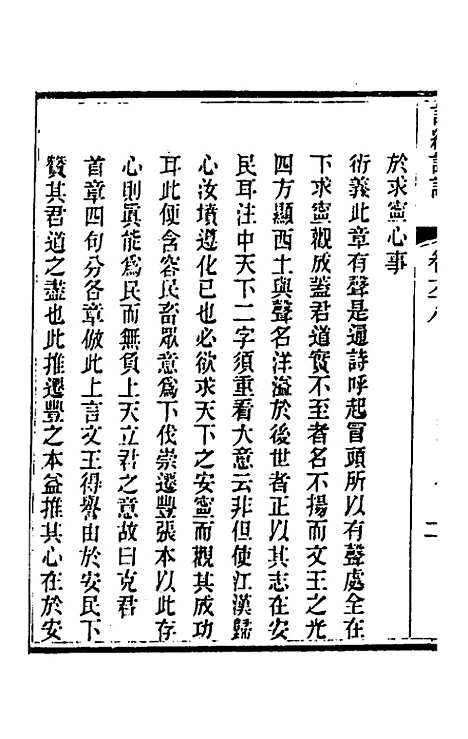 於求寧心事
衍義此章有聲是通詩呼起冒頭所以有聲處全在
下求寧觀成蓋君道實不至者名不揚而文王之光
四方顯西土與聲名洋溢於後世者正以其志在安
民耳注中天下二字須重看大意云非但使江漢歸
心汝墳遵化已也必欲求天下之安寧而觀其成功
耳此便含容民畜眾意為下伐崇遷豐張本以此存
心則眞能為民而無負上天立君之意故曰克君
首章四句分各章倣此上言文王得譽由於安民下
贊其君道之盡也此推遷豐之本益推其心在於安
二